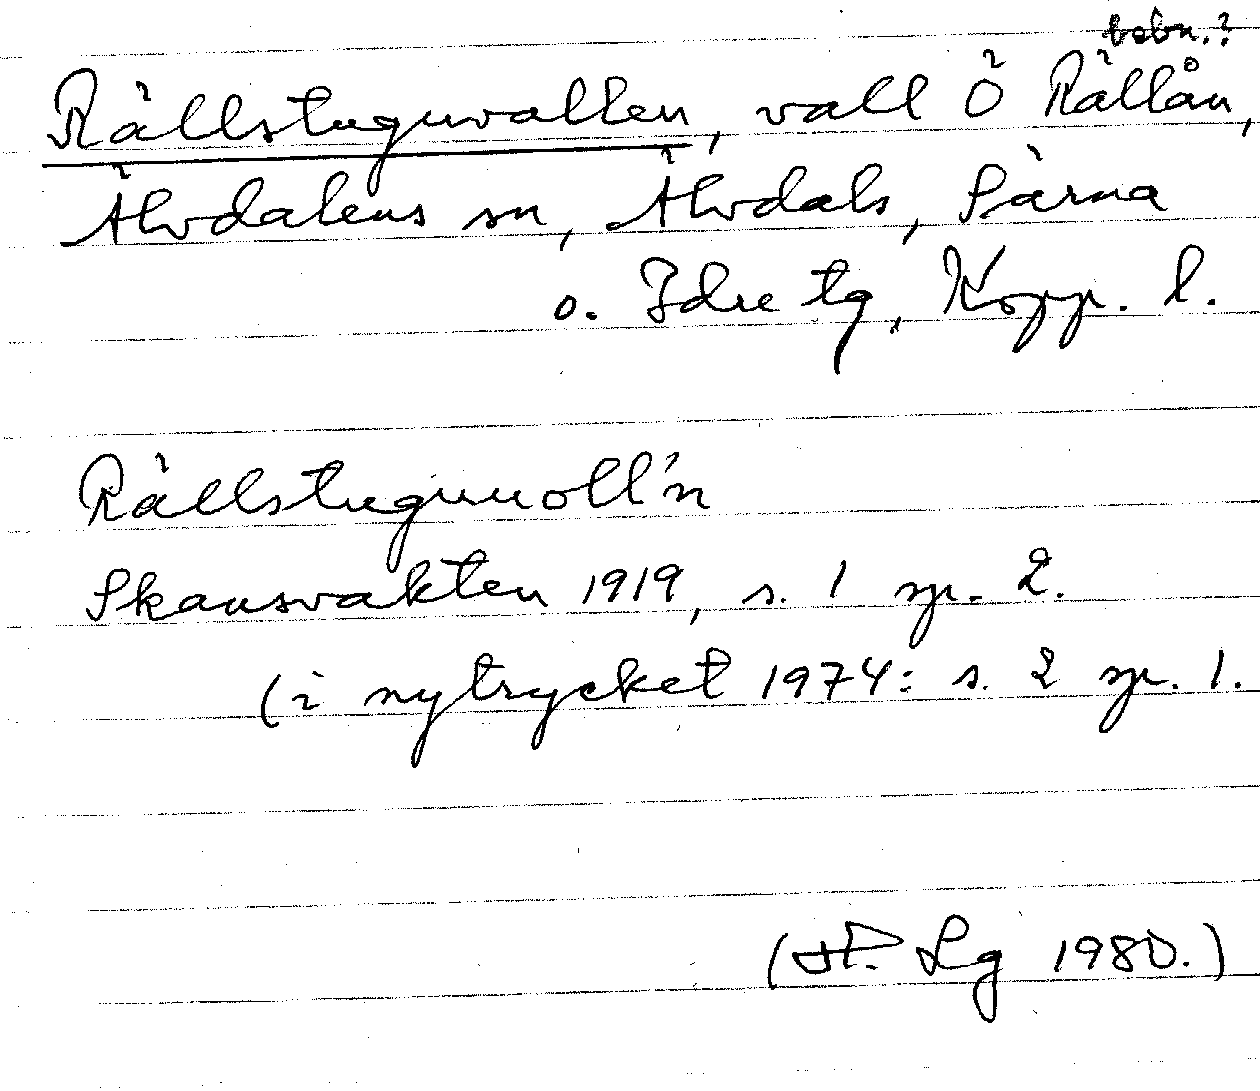 bebn.?
Rällstuguvallen, vall Ö Rällån,
Älvdalens sn, Älvdals, Särna
o. Idre tg, Kopp. l.
Rällstuguvoll'n
Skansvakten 1919, s. 1 sp. 2.
(i nytrycket 1974: s. 2 sp. 1.
Lg 1980.)